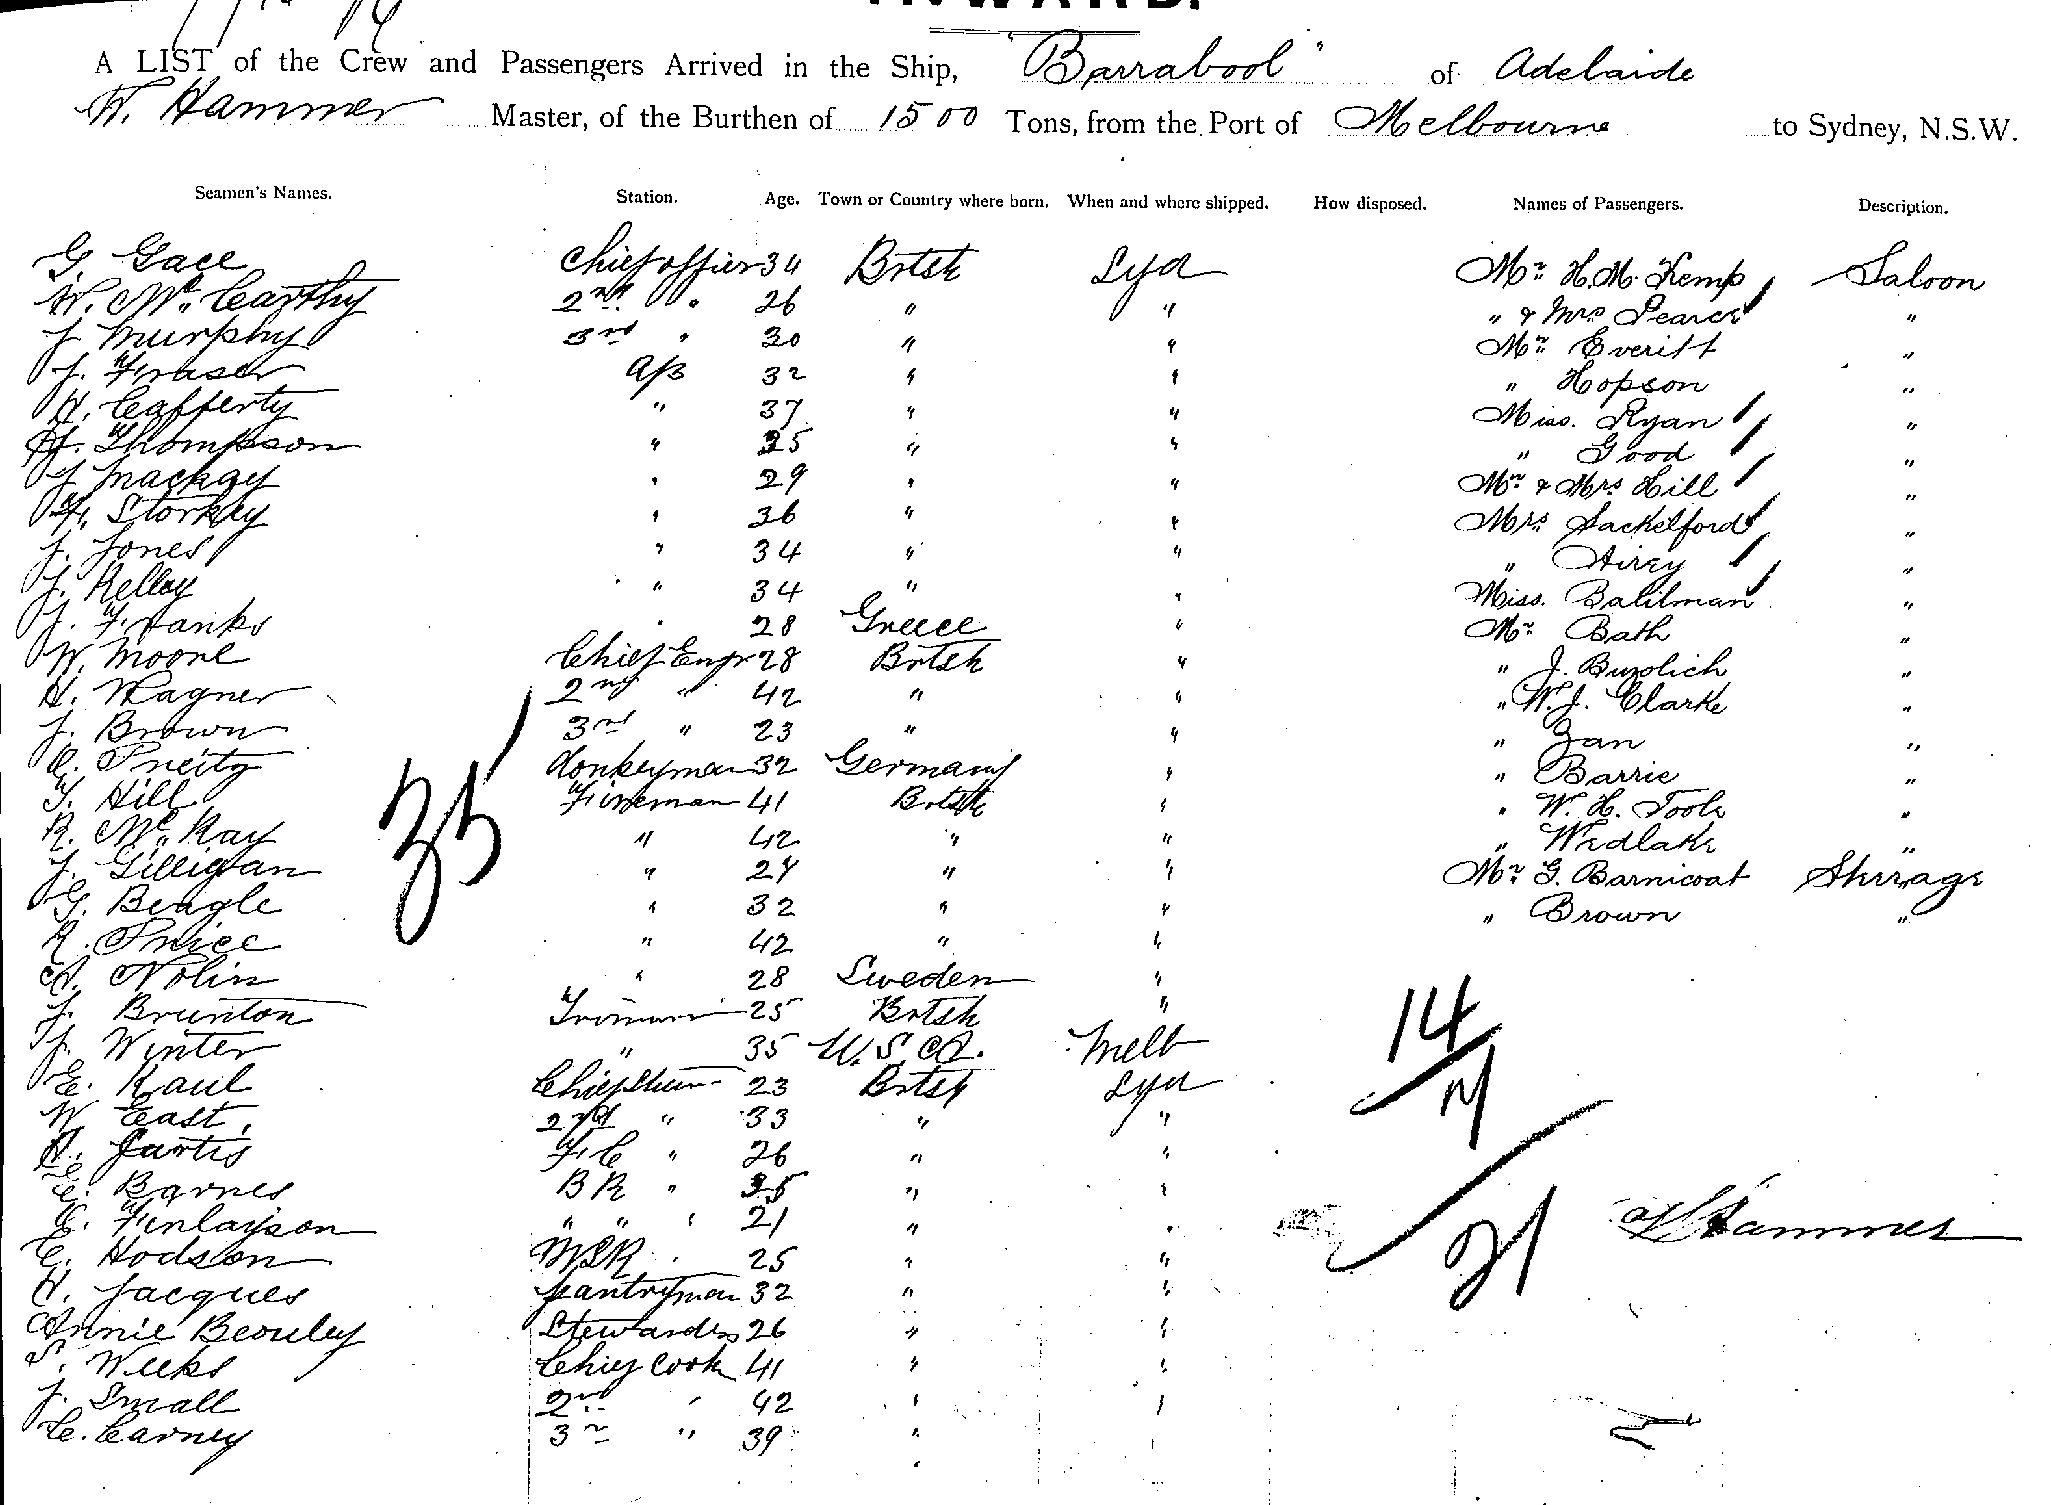 INWARD.
A LIST of the Crew and Passengers Arrived in the Ship, "Barrabool" of Adelaide
W. Hammer Master, of the Burthen of 1500 Tons, from the Port of Melbourne to Sydney, N.S.W.
Seamen's Names. Station. Age. Town or Country where born. When and where shipped. How disposed. Names of Passengers. Description.
G. Gace Chief officer 34 Britsh Syd Mr. H.M. Kemp Saloon
W. Mc. Carthy 2nd " 26 " " " & Mrs Pearce "
J Murphy 3rd " 30 " " Mr. Everitt "
J. Fraser A/B 32 " " " Hopson "
H. Cafferty " 37 " " Miss. Ryan "
H. Thompson " 35 " " " Good "
J Mackay " 29 " " Mr. & Mrs Hill "
F. Storkey " 36 " " Mrs. Sackelford "
J. Jones " 34 " " " Airey "
J. Kelley " 34 " " Miss. Balilman "
J. Franks " 28 Greece " Mr. Bath "
W. Moore Chief Engr 28 Britsh " " J. Buzolich "
H. Wagner 2nd " 42 " " " W.J. Clarke "
J. Brown 3rd " 23 " " " Zan "
donkeyman 32 Germany " " Barrie "
T. Hill Fireman 41 Britsh " " W. H. Toole "
R. Mc. Kay " 42 " " " Wedlake "
J. Gilligan " 24 " " Mr. G. Barnicoat Sterrage
G. Beagle " 32 " " " Brown "
R. Price " 42 " "
A. Nolin " 28 Sweden "
J. Brunton Trimmer 25 Britsh "
J. Winter " 35 U.S.A. Melb
E. Kaul Chief Stew 23 Britsh Syd
W. East, 2nd " 33 " "
H. Jartis F.C " 26 " "
E. Barnes BR " 35 " "
E. Finlayson " " " 21 " "
E. Hodson MSR " 25 " "
H. Jacques pantryman 32 " "
Annie Beouley Stewardess 26 " "
S. Weeks Chief Cook 41 " "
J. Small 2nd " 42 " "
C. Carney 3rd " 39 "
35
14
7
21
W Hammer